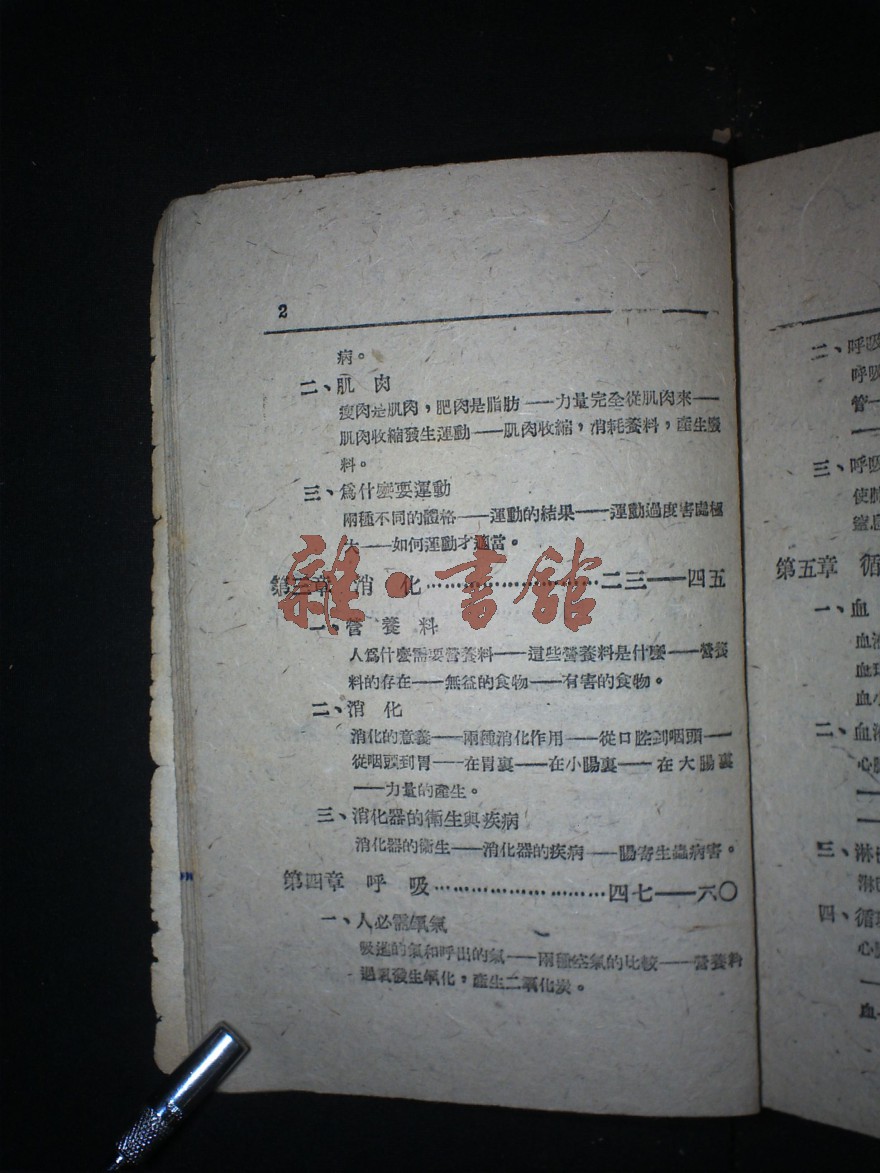 2
病。
二、肌 肉
瘦肉是肌肉，肥肉是脂肪——力量完全從肌肉來——
肌肉收縮發生運動——肌肉收縮，消耗養料，產生廢
料。
三、爲什麼要運動
兩種不同的體格——運動的結果——運動過度害處極
大——如何運動才適當。
第三章 消 化…………………………二三——四五
一、營 養 料
人爲什麼需要營養料——這些營養料是什麼——營養
料的存在——無益的食物——有害的食物。
二、消 化
消化的意義——兩種消化作用——從口腔到咽頭——
從咽頭到胃——在胃裏——在小腸裏——在大腸裏
——力量的產生。
三、消化器的衛生與疾病
消化器的衛生——消化器的疾病——腸寄生蟲病害。
第四章 呼 吸…………………………四七——六〇
一、人必需氧氣
吸進的氣和呼出的氣——兩種空氣的比較——營養料
遇氧發生氧化，產生二氧化炭。
雜·書館
二、呼吸
呼吸
管—
三、呼吸
使肺
第五章 循
一、血
血液
血球
血小
二、血液
心臟
三、淋巴
淋巴
四、循環
心臟
血